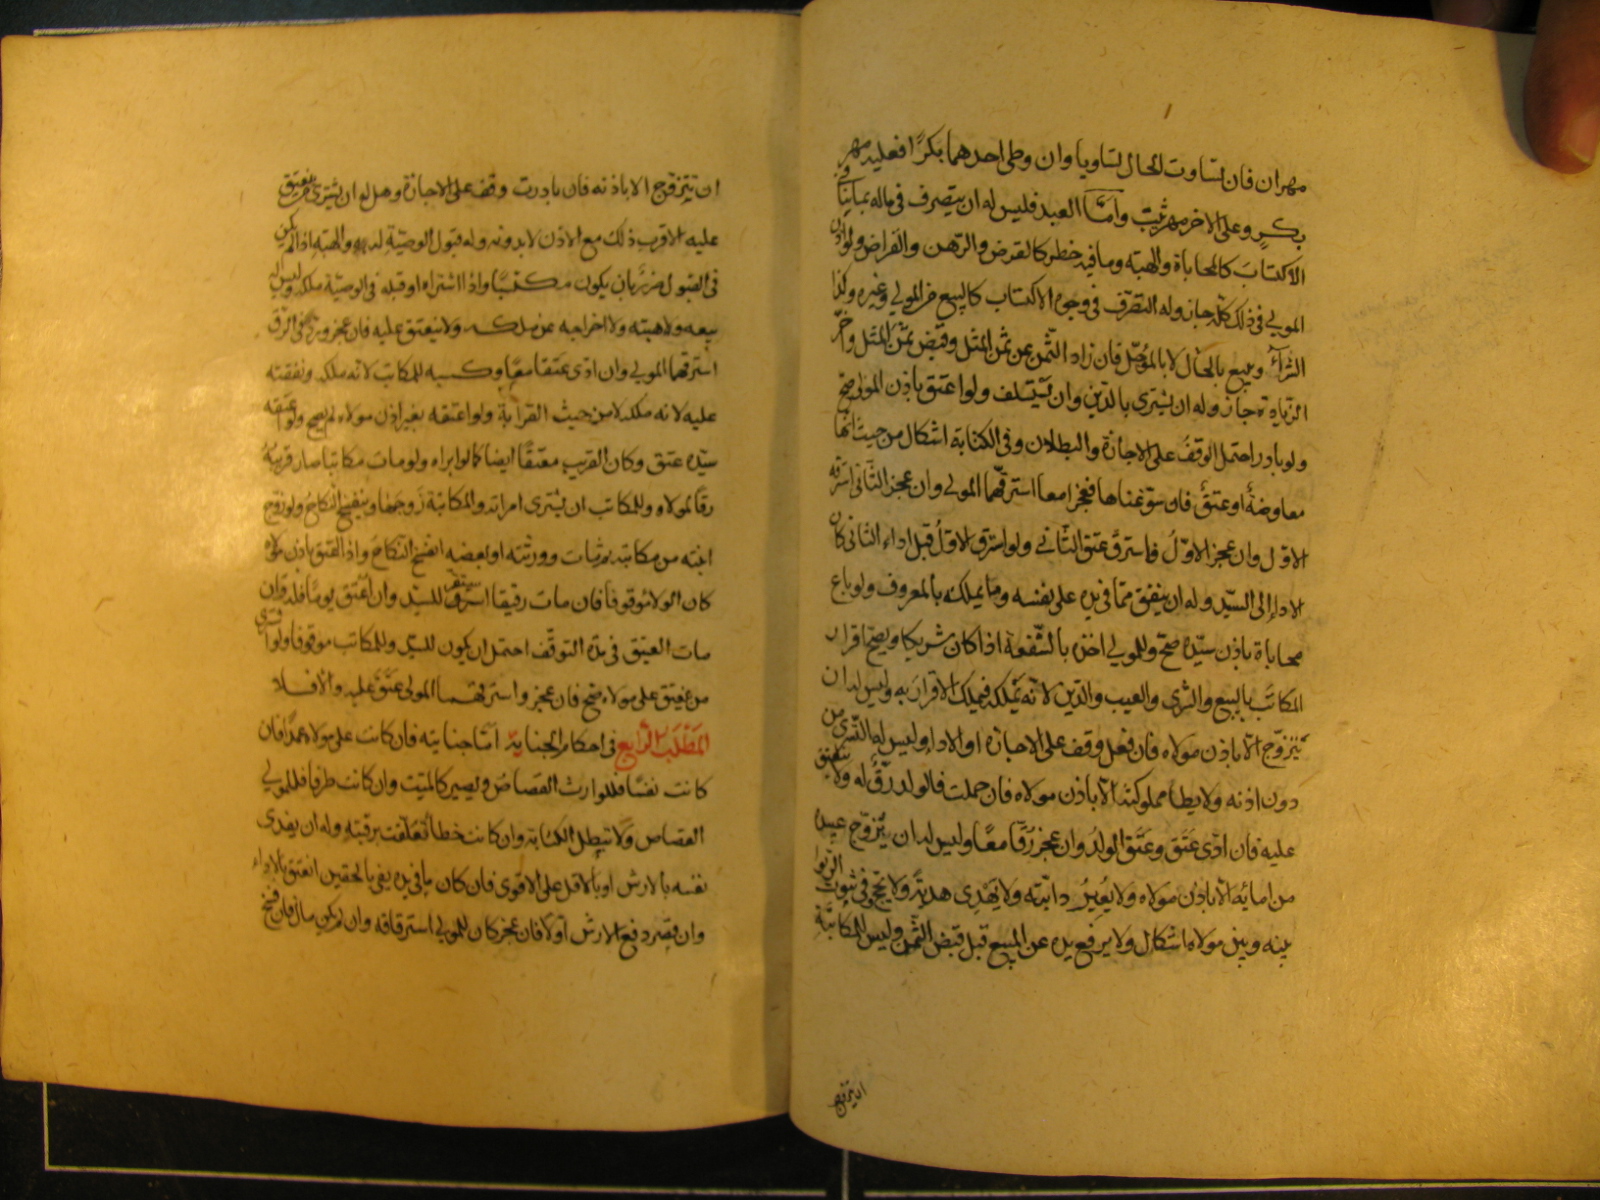 مهران فان تساوت الحال تساويا وان وطى احدهما بكرًا فعليه مهر
بكرٍ وعلى الاخر مهر ثيّب وامّا العبد فليس له ان يتصرف فى ماله بما ينافى
الاكتسابَ كالمحاباة والهبة وما فيه خطر كالقرض والرّهن والقراض ولو اذن
المولى فى ذلك كلّه جاز وله التصرّف فى وجوه الاكتساب كالبيع من المولى وغيره وكذا
الشّرآءُ ويبيع بالحال لا بالمؤجّل فان زاد الثّمن عن ثمن المثل وقبض ثمن المثل واخّر
الزّيادة جاز وله ان يشترى بالدّين وان يستسلف ولو اعتق باذن المولى صحّ
ولو بادر احتمل الوقفُ على الاجازة والبطلان وفى الكتابة اشكال من حيث انّها
معاوضةٌ او عتقٌ فان سوّغناها فعجزا معا استرقّهما المولى وان عجز الثّانى استرقّه
الاوّل وان عجز الاوّلُ فاسترقّ عتق الثّانى ولو استرق الاوّلُ قبل اداء الثانى كان
الاداء الى السيّد وله ان ينفق ممّا فى يده على نفسه وما يملكه بالمعروف ولو باع
محاباة باذن سيّده صحّ وللمولى اخذه بالشّفعة اذا كان شريكا ويصحّ اقرار
المكاتَب بالبيع والشّرى والعيب والدّين لانّه يَمْلكه فيملك الاقرارَ به وليس له ان
يتزوّج الّا باذن مولاه فان فعل وقف على الاجازة او الاداء وليس له التّسرى من
دون اذنه ولا يطأ مملوكته الّا باذن مولاه فان حملت فالولد رِقٌّ له ولا ينعتق
عليه فان ادّى عَتَق وعَتَق الولدُ وان عجز رُقّا معًا وليس له ان يُزوّج عبيده
من امائِه الّا باذن مولاه ولا يُعيرُ دابّته ولا يَهْدِى هديّةً ولا يحجّ وفى ثبوت الرّبوا
بينه وبين مولاه اشكال ولا يرفع يده عن المبيع قبل قبض الثّمن وليس للمكاتَبَة
ان تتزوّج
ان تتزوّج الا باذنه فان بادرت وقف على الاجازة وهل له ان يشترى من ينعتق
عليه الاقرب ذلك مع الاذن لا بدونه وله قبول الوصيّة له به والهبه اذا لم يكن
فى القبول ضررٌ بان يكون مكتسبًا واذا اشتراه او قبله فى الوصيّة ملكه وليس له
بيعه ولا هبته ولا اخراجه عن ملكه ولا ينعتق عليه فان عجز ورُدّ فى الرّق
استرقهما المولى وان ادّى عتقا معًا وكسبه للمكاتب لانّه ملكه ونفقته
عليه لانه ملكه لا من حيث القرابة ولو اعتقه بغير اذن مولاه لم يصح ولو اعتقه
سيّده عتق وكان القريب معتقًا ايضا كما لو ابراه ولو مات مكاتبا صار قريبُهُ
رقًا لمولاه وللمكاتب ان يشترى امراته والمكاتبة زَوجَهَا وينفسخ النّكاحُ ولو زوّج
ابنته من مكاتبه ثم مات وورثته او بعضه انفسخ النّكاحُ واذا اعتق باذن مولاه
كان الولا موقوفا فان مات رقيقا استقرّ للسيّد وان اُعْتق يومًا فله وان
مات العتيق فى مدّة التوقّف احتمل ان يكون للسيّد وللمكاتب موقوفا ولو اشترى
من ينعتق على مولاه صحّ فان عجز واسترقهما المولى عَتَقَ عليه والّا فلا
المَطلَبُ الرّابع فى احكام الجناية امّا جنايته فان كانت على مولاه عمدًا فان
كانت نفسًا فللوارث القصاصُ ويصير كالميّت وان كانت طرفا فللمولى
القصاص ولا تبطل الكتابة وان كانت خطأ تعلّقت برقبته وله ان يفدى
نفسه بالارش او بالاقل على الاقوى فان كان ما فى يده يفى بالحقين انعتق بالاداء
وان قصر دفع الارش اوّلا فان عجز كان للمولى استرقاقه وان لم يكن مال فان فسخ